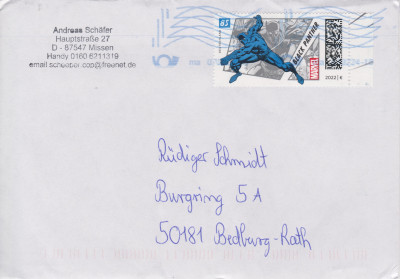 Andreas Schäfer
Hauptstraße 27
D - 87547 Missen
Handy 0160 6211319
85
BLACK PANTHER
MARVEL
2022 | €
Rüdiger Schmidt
Burgring 5 A
50181 Bedburg-Rath